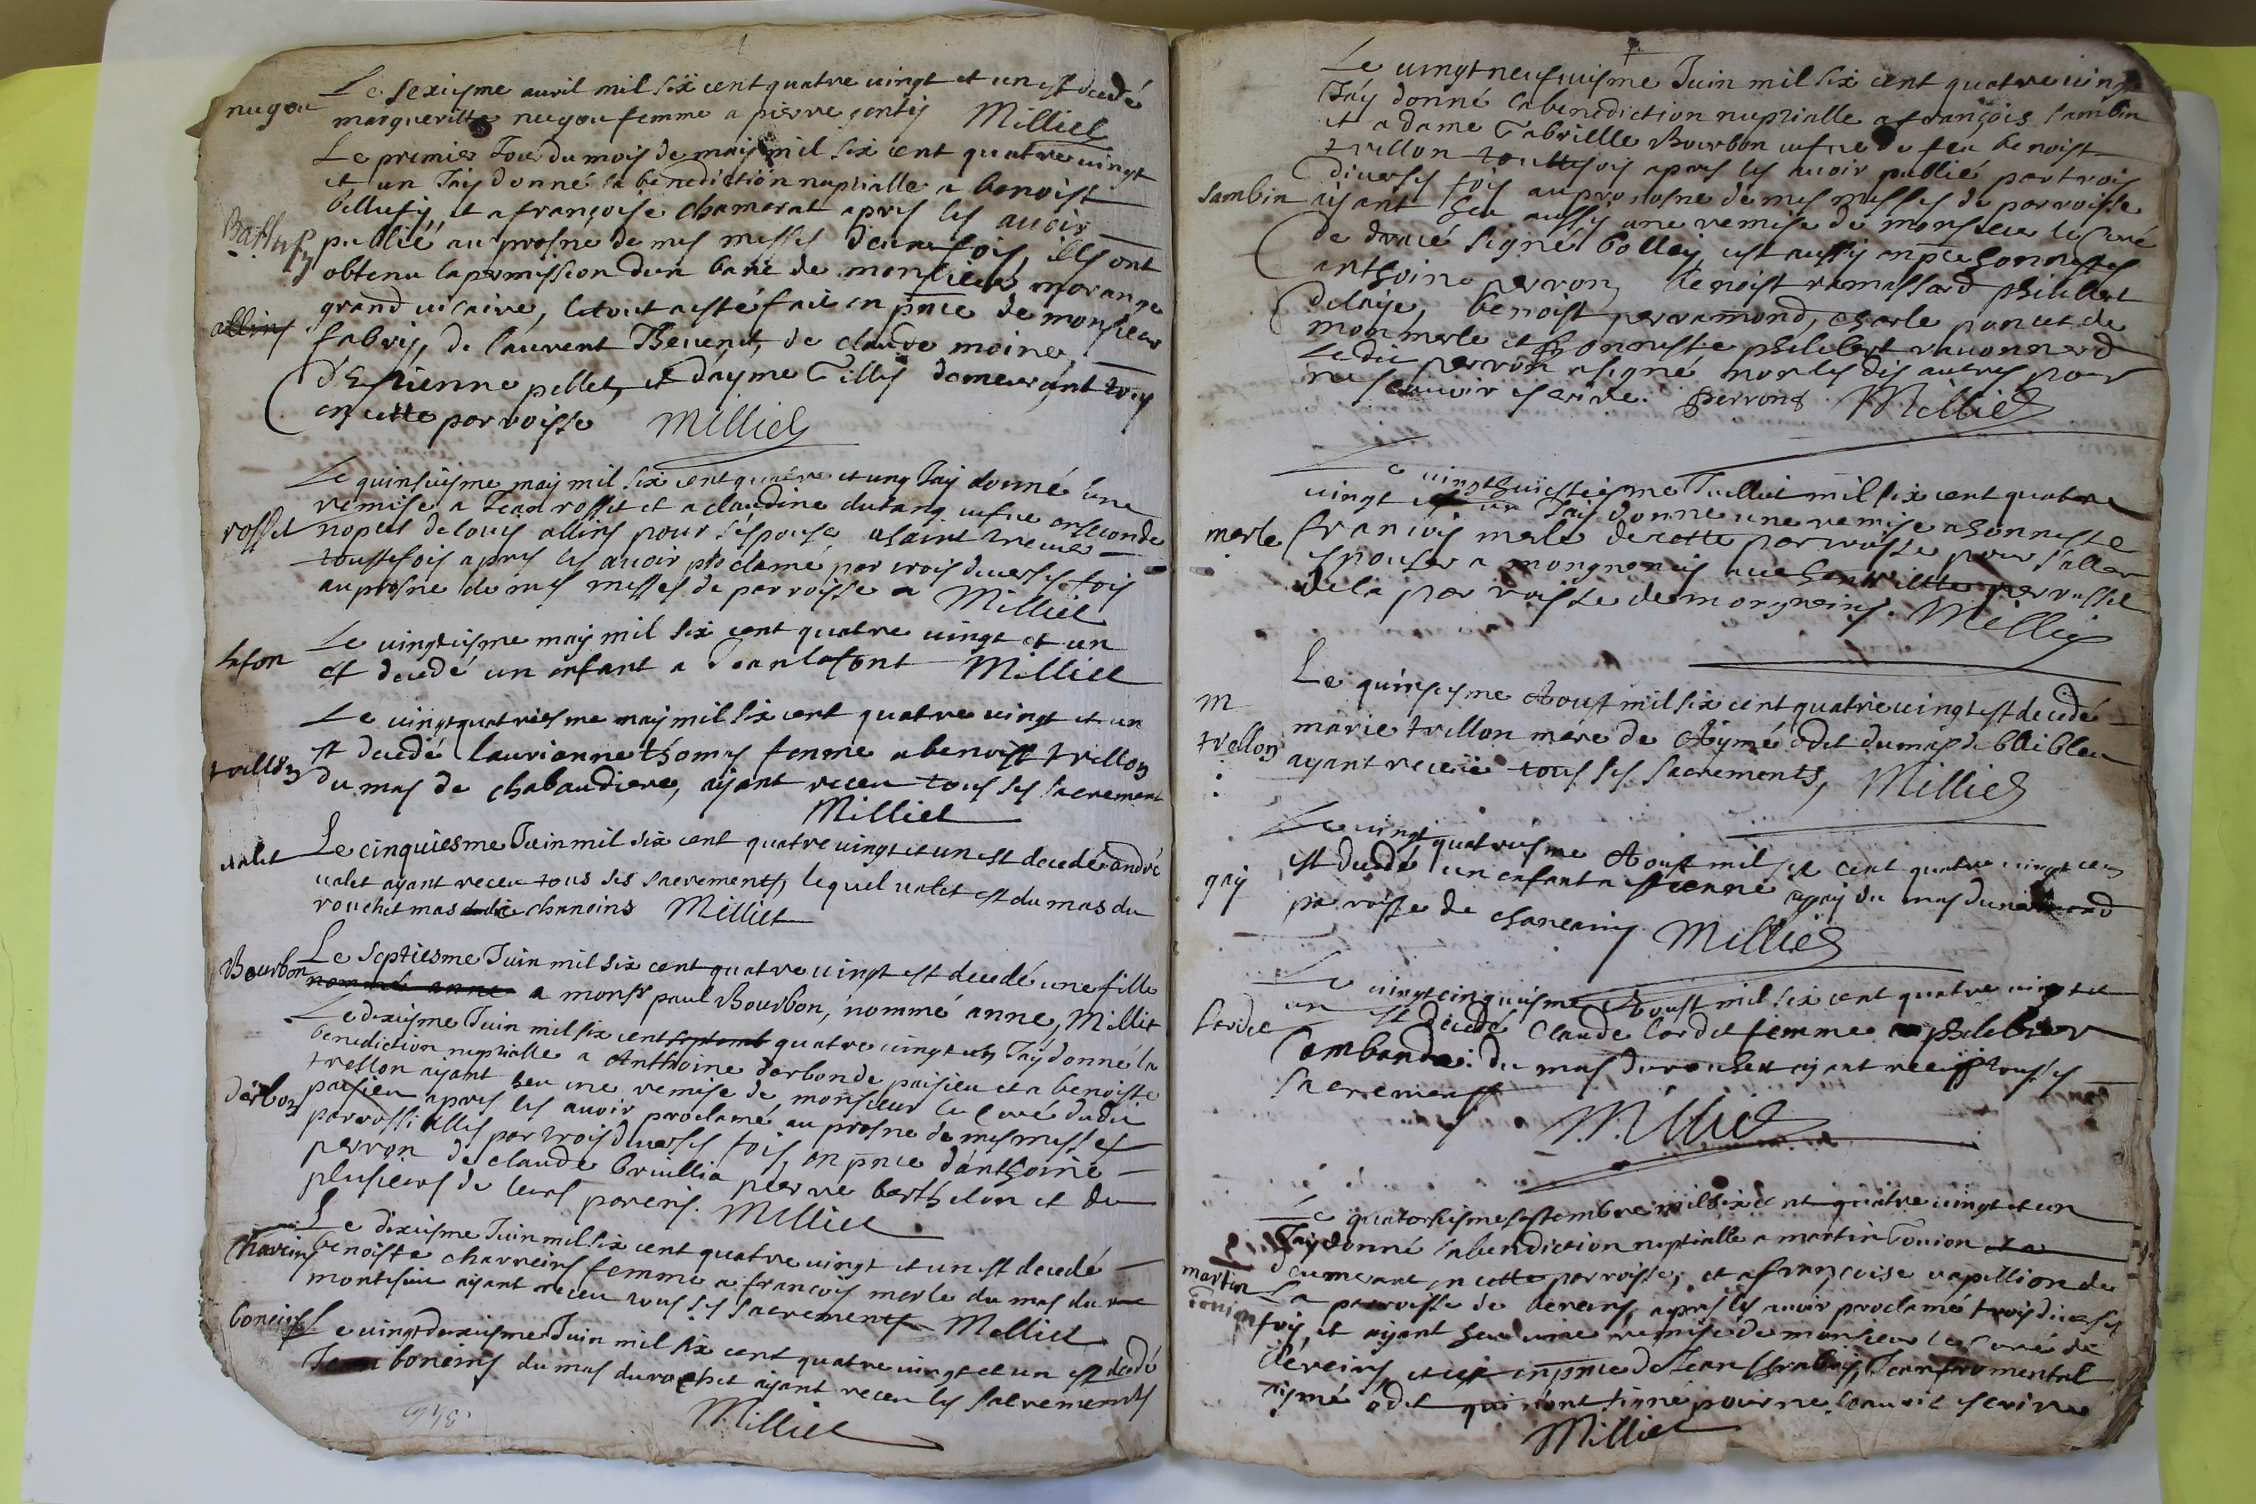 nugou
Le sexiesme auril mil six cent quatre uingt et un est decedé
margueritte nugou femme a pierre gentÿ Milliet
Le premier Jour du mois de maÿ mil six cent quatre uingt
et un Jaÿ donné la benediction nuptialle a benoist
et a françoise chamerat apres les auoir
publié au prosne de mes messes deux fois, ills ont
obtenu la permission dun banc de monsieur morange
allins
grand uicaire, le tout a esté fait en pnce de monsieur
fabrÿ, de laurent Theuenet, de claude moine
d'Estienne pellet, et d'aÿme Gillet demeurant tous
en cette parroisse Milliet
Le quinsiesme maÿ mil six cent quatre et ung Jaÿ donné une
remise a Jean rosset et a claudine dutang uefue en seconde
rosset nopces de louis allins pour s'espouser a saint treuie
touttefois apres les auoir proclamé par trois diuerses fois
au prosne de mes messes de parroisse Milliet
Le uingtiesme maÿ mil six cent quatre uingt et un
lafon
est decedé un enfant a Jean lafont Milliet
Le uingtquatriesme maÿ mil six cent quatre uingt et un
est decedé laurianne thomas femme a benoist trellon
trellon du mas de chabaudiere, aÿant receu tous ses sacrement
Milliet
ualet Le cinquiesme Juin mil six cent quatre uingt et un est decedé andré
ualet ayant receu tous ses sacrements, lequel ualet est du mas du
rouchet mas de chaneins Milliet
Le septiesme Juin mil six cent quatre uingt est decedé une fille
Bourbon nommé anne a monsr paul Bourbon, nommé anne, Milliet
Le dixiesme Juin mil six cent septemb quatre uingt un Jaÿ donné la
benediction nuptialle a Anthoine darbon de paisieu et a benoiste
trellon aÿant heu une remise de monsieur le Curé dudit
paisieu apres les auoir proclamé au prosne de mes messes
darbon
parrossialles par trois diuerses fois, en pnce d'anthoine
perron de claude briullia pierre barthelon et de
plusieurs de leurs parens. Milliet
Le dixiesme Juin mil six cent quatre uingt et un est decedé
charreins benoiste charreins femme a françois merle du mas du
montesieu aÿant receu tous ses sacrements Milliet
boneins Le uingtdeuxiesme Juin mil six cent quatre uingt et un est decedé
boneins du mas du rochet aÿant receu les sacrements
Milliet
Le uingtneufuiesme Juin mil six cent quatre uingt
Jaÿ donné la benediction nuptialle a françois sambin
et a dame Gabrielle Bourbon uefue de feu benoist
trellon touttefois apres les auoir publié par trois
diuerses fois au prosne de mes messes de parroisse
sambin aÿant heu aussÿ une remise de monsieur le Curé
de dracé signé bolleÿ, est aussÿ en pnce honnestes
anthoine perron, benoist ramassard philibert
delaÿe, benoist perramond, charle poncet de
monmerle et honneste philibert rauonnard
Ledit perron a signé non les dis autres pour
ne scauoir escrire. Perron Milliet
Le uingthuictiesme Juillet mil six cent quatre
uingt et un Jaÿ donné une remise a honneste
merle françois merle de cette parroisse pour s'aller
espouser a mongneneis auec
de la parroisse de mongneins. Milliet
Le quinsiesme Aoust mil six cent quatre uingt est decedé
m
trellon marie trellon mére de Aÿmé odet du mas de
aÿant receüe tous ses sacrements, Milliet
Le uingt quatriesme Aoust mil six cent quatre uingt un
est decedé un enfant a estienne gaÿ du mas du
gaÿ
parroisse de chaneins Milliet
Le uingtcinquiesme Aoust mil six cent quatre uingt et
un est decedé Claude Cordet femme a philibert
Cordet
du mas du rouchet aÿant receu tous ses
sacrements
Milliet
Le quatorsiesme septembre mil six cent quatre uingt et un
Jaÿ donné la benediction nuptialle a martin Gonion
demeurant en cette parroisse, et a françoise uapillion de
martin
Gonion
la parroisse de clereins, apres les auoir proclamé trois diuerses
fois, et aÿant heu une remise de monsieur le Curé de
cléreins, en pnce de Jean Jean fromental
aÿmé odet qui n'ont signé pour ne scauoir escrire
Milliet